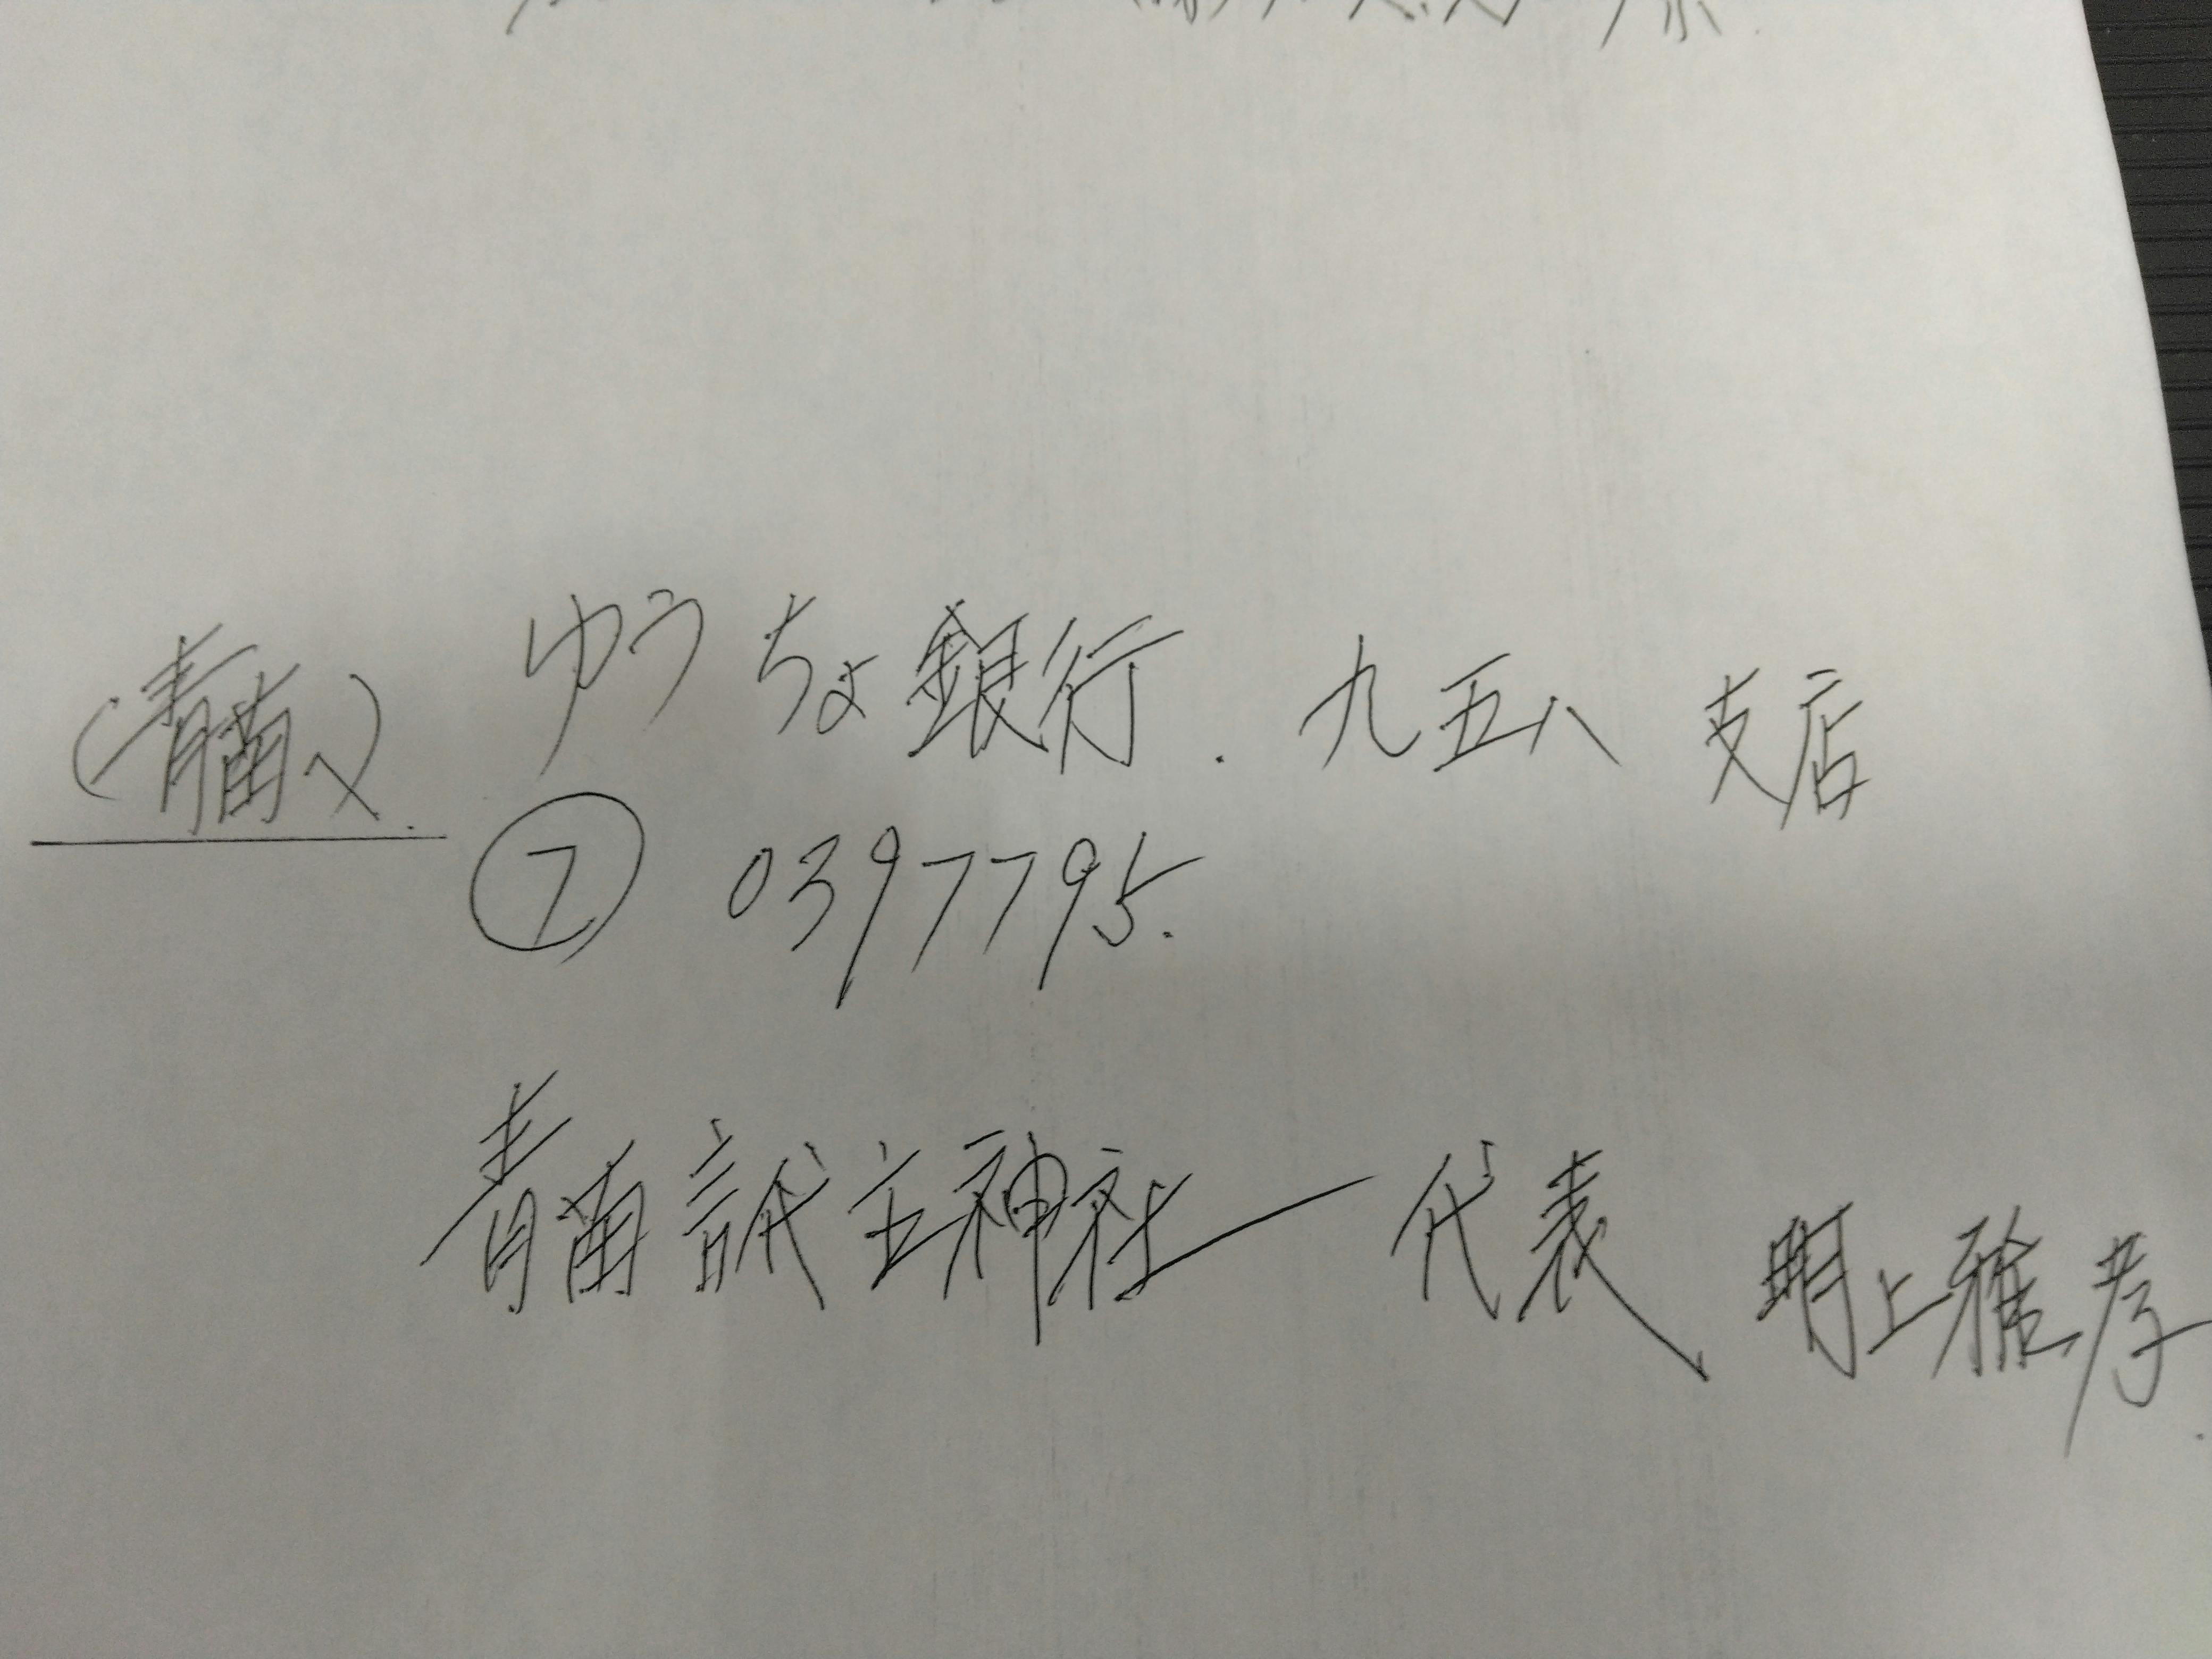 (青南へ). ゆうちょ銀行. 九五八 支店
フ 0397795.
青南誠主神社 代表 明上雅孝.